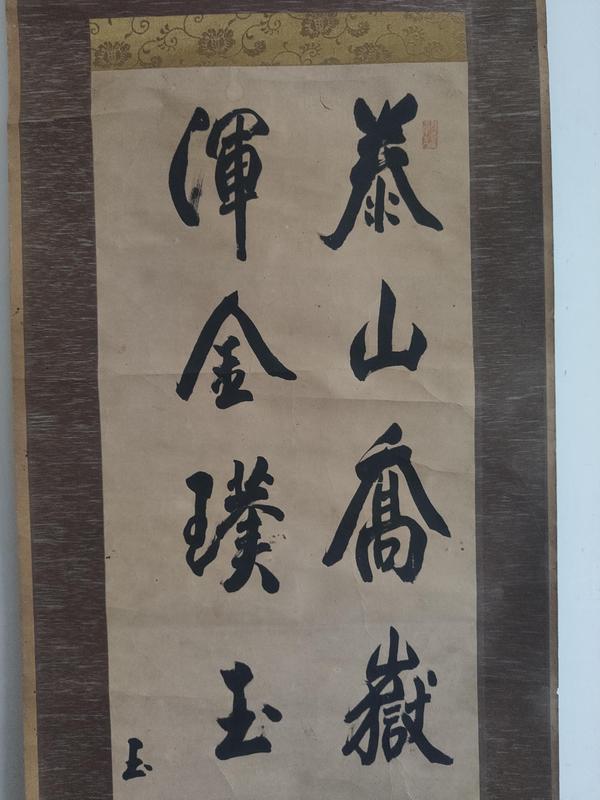 泰山喬嶽
渾金璞玉
玉